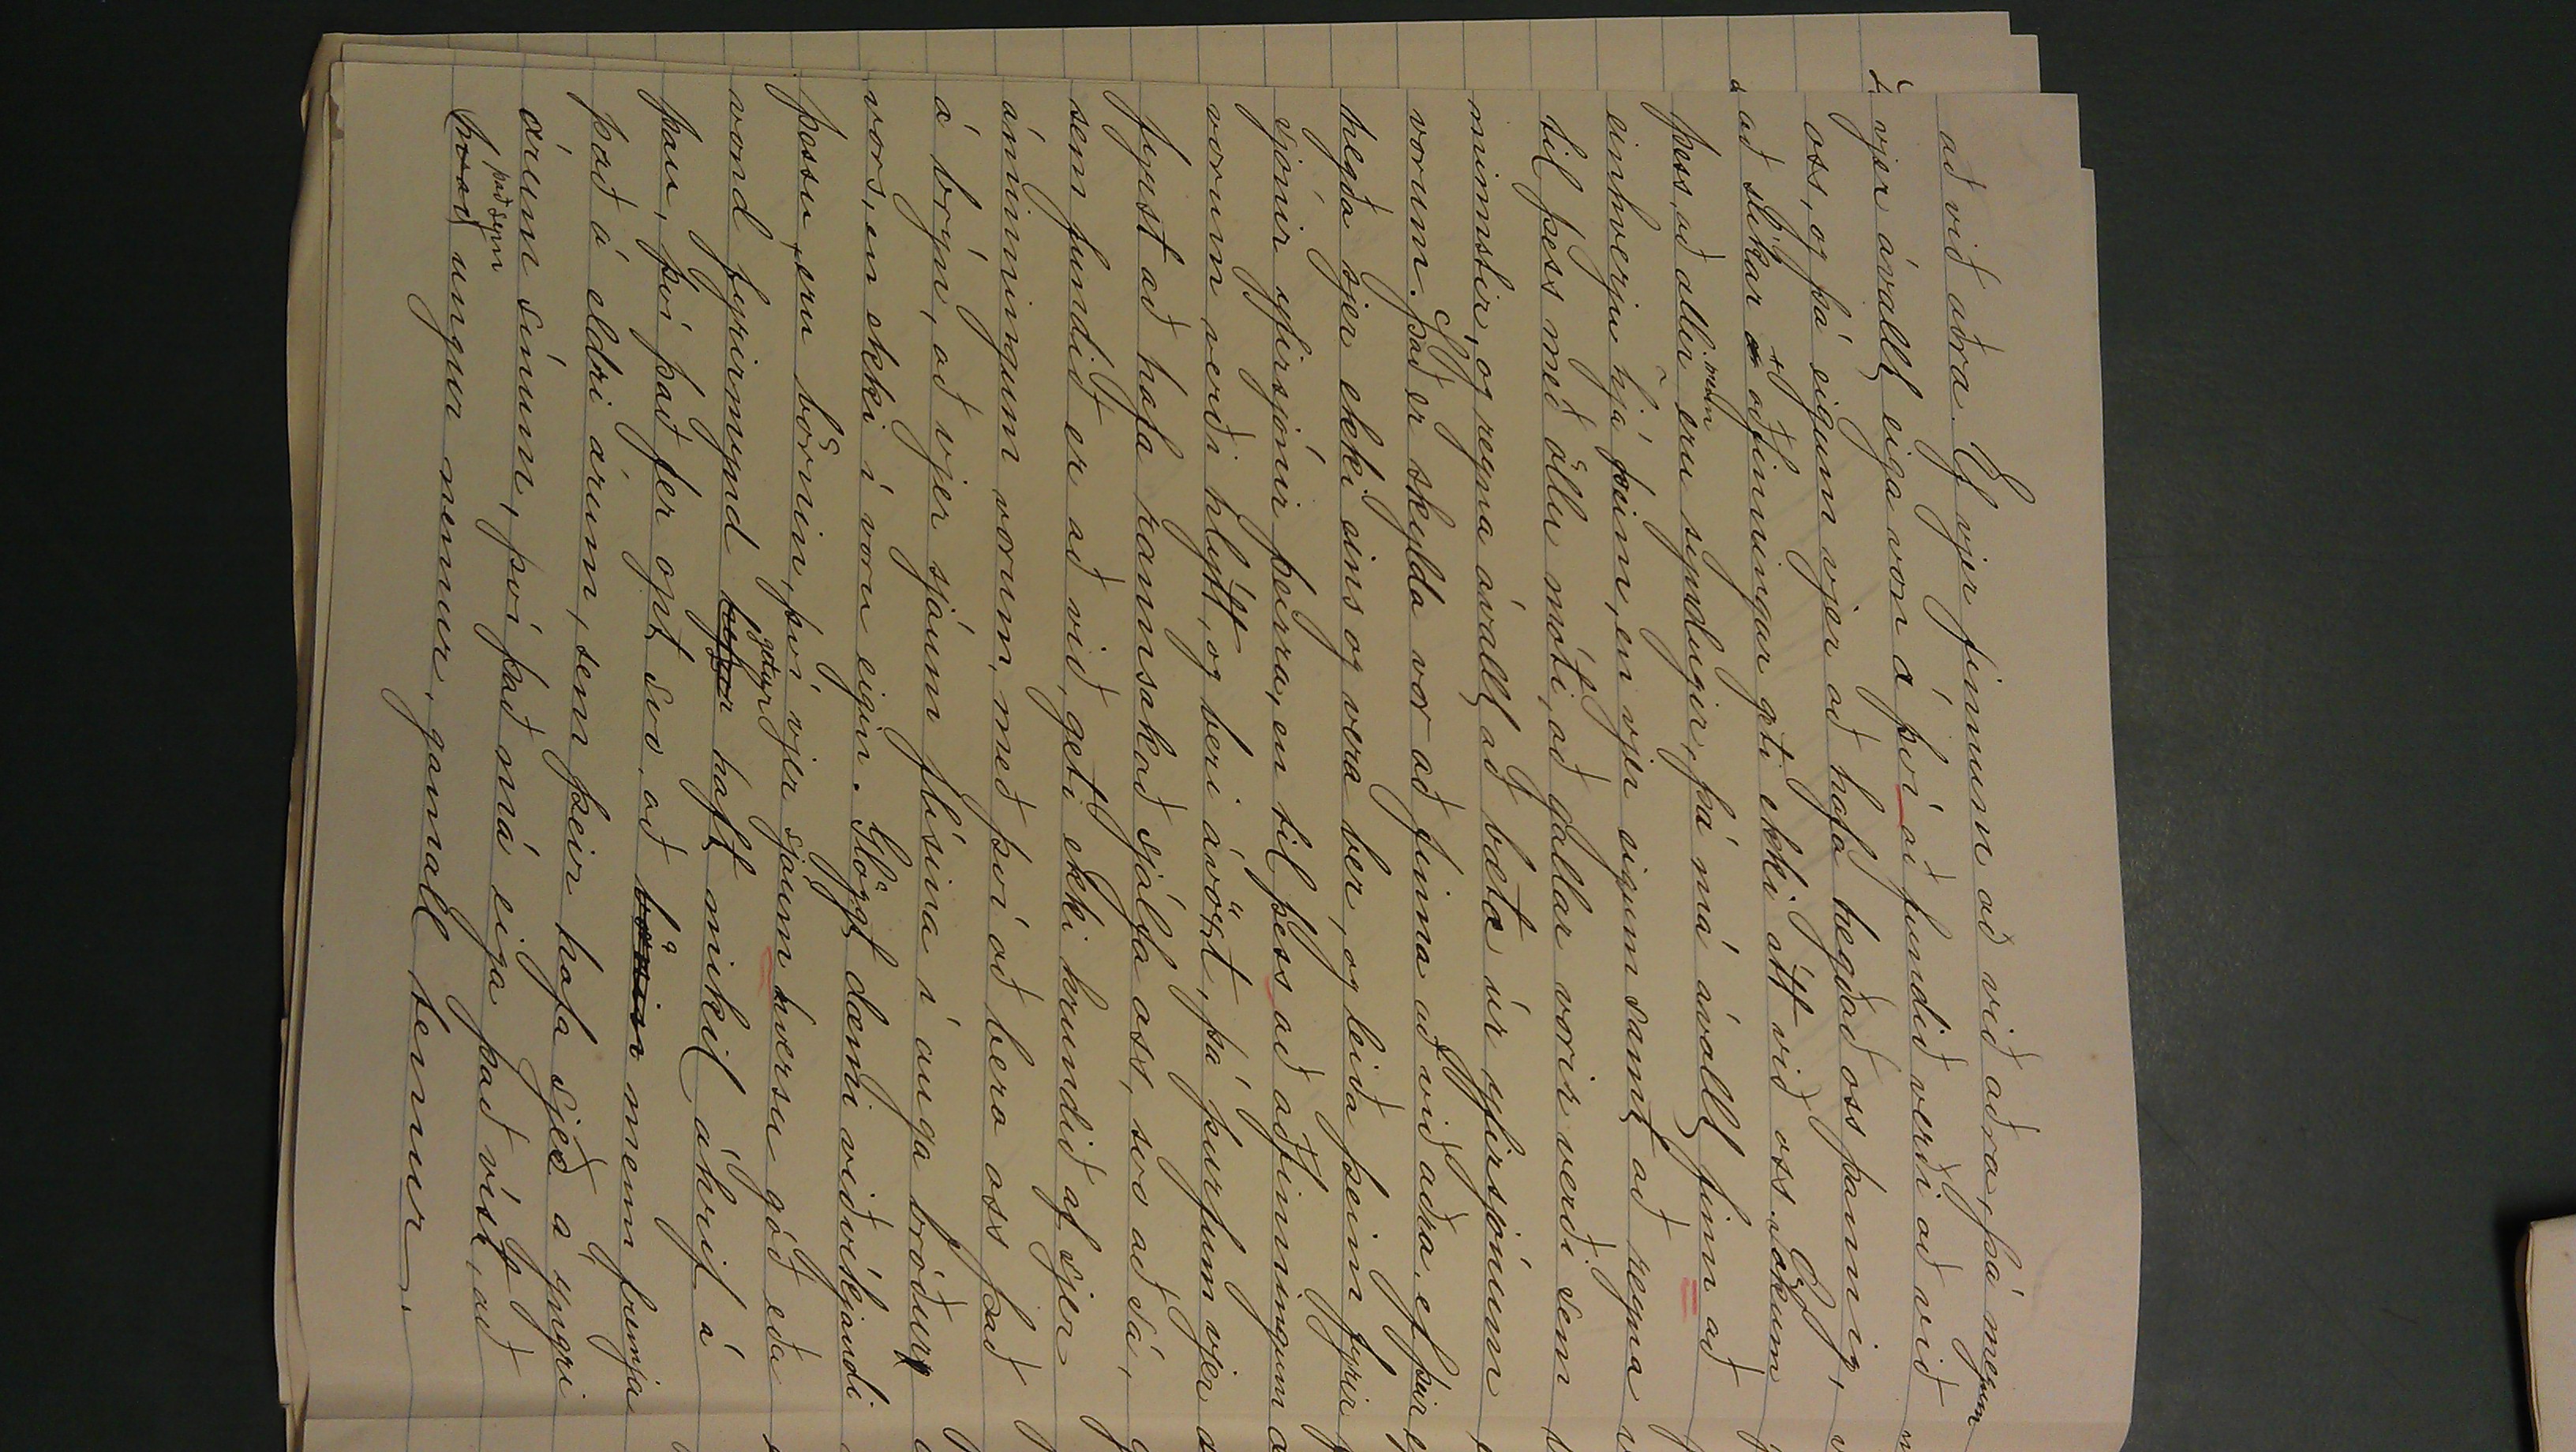 að við aðra. Ef vjer finnum að við aðra, þá megum
vjer ávallt eiga von á því að fundið verði að við
oss, og þá eigum vjer að hafa hegðað oss þannig,
að slíkar aðfinningar geti ekki átt við oss. Sökum
þess, að allir menn eru syndugir, þá má ávallt finn að
einhverju hjá þeim, en vjer eigum samt að reyna
til þess með öllu móti, að gallar vorir verði sem
minnstir, og reyna ávallt að bæta úr yfirsjónum
vorum. Það er skylda vor að finna að við aðra, ef þeir
hegða sjer ekki eins og vera ber, og leiða þeim fyrir
sjónir yfirsjónir þeirra, en til þess að aðfinningum
vorum verði hlýtt, og beri ávöxt, þá þurfum vjer
fyrst að hafa rannsakað sjálfa oss, svo að sá,
sem fundið er að við, geti ekki hrundið af sjer
áminningum vorum, með því að bera oss það
á brýn, að vjer sjáum flísina í auga bróður
vors, en ekki í voru eigin. Glöggt dæmi viðvíkjandi
þessu, eru börnin, því vjer sjáum hversu góð eða
vond fyrirmynd getur haft mikil áhrif á
þau, því það fer opt svo, að menn fremja
það á eldri árum, sem þeir hafa sjeð á yngri
árum sínum, því það má eiga það víst, að
það sem ungur nemur, gamall temur.